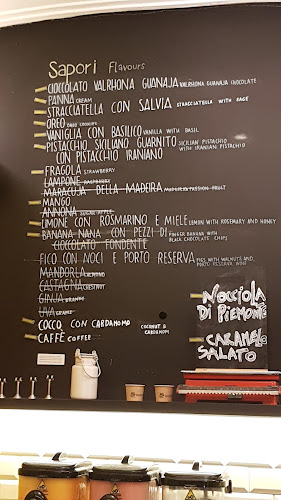 Sapori Flavours
CIOCCOLATO VALRHONA GUANAJA VALRHONA GUANAJA CHOCOLATE
PANNA CREAM
STRACCIATELLA CON SALVIA STRACCIATELLA WITH SAGE
OREO OREO COOKIES
VANIGLIA CON BASILICO VANILLA WITH BASIL
PISTACCHIO SICILIANO GUARNITO SICILIAN PISTACHIO
CON PISTACCHIO IRANIANO WITH IRANIAN PISTACHIO
FRAGOLA STRAWBERRY
LAMPONE RASPBERRY
MARACUJA DELLA MADEIRA MADEIRA PASSION FRUIT
MANGO
ANNONA SUGAR APPLE
LIMONE CON ROSMARINO E MIELE LEMON WITH ROSEMARY AND HONEY
BANANA NANA CON PEZZI DI FINGER BANANA WITH
CIOCCOLATO FONDENTE BLACK CHOCOLATE CHIPS
FICO CON NOCI E PORTO RESERVA FIGS WITH WALNUTS AND
PORTO RESERVA WINE
MANDORLA ALMOND
CASTAGNA CHESTNUT
GINJA
UVA GRAPE
COCCO CON CARDAMOMO COCONUT & CARDAMOM
CAFFÈ COFFEE
NOCCIOLA
DI PIEMONTE
CARAMEL
SALATO